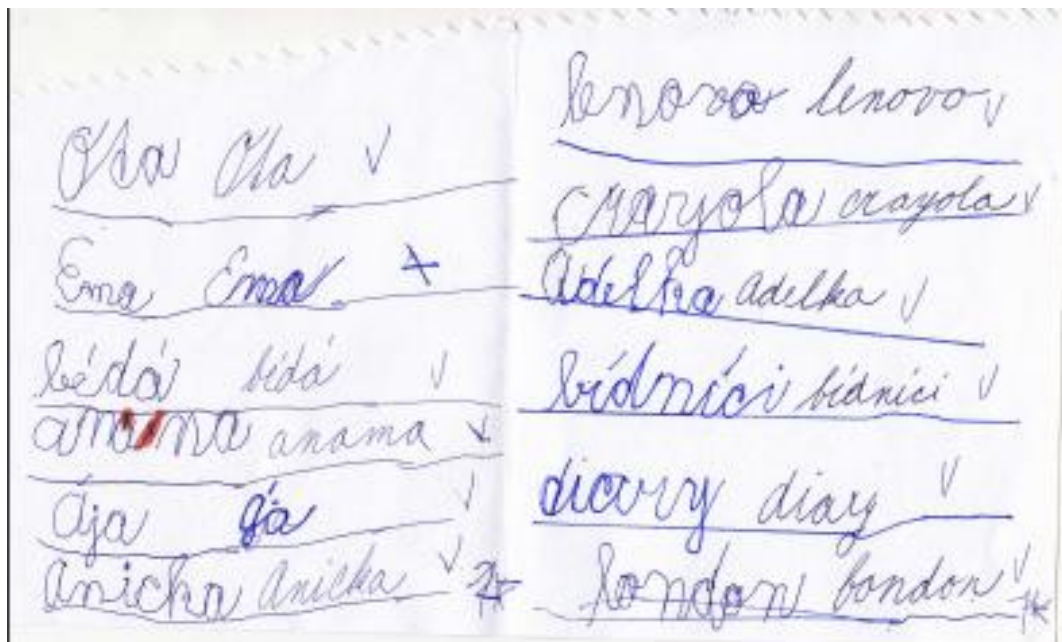 Ota Ota
Ema Ema
bédá bídá
anana anama
Ája ája
Anička Anička
lenovo lenovo
crayola crayola
Adelka Adelka
bídníci bídníci
diary diary
London London